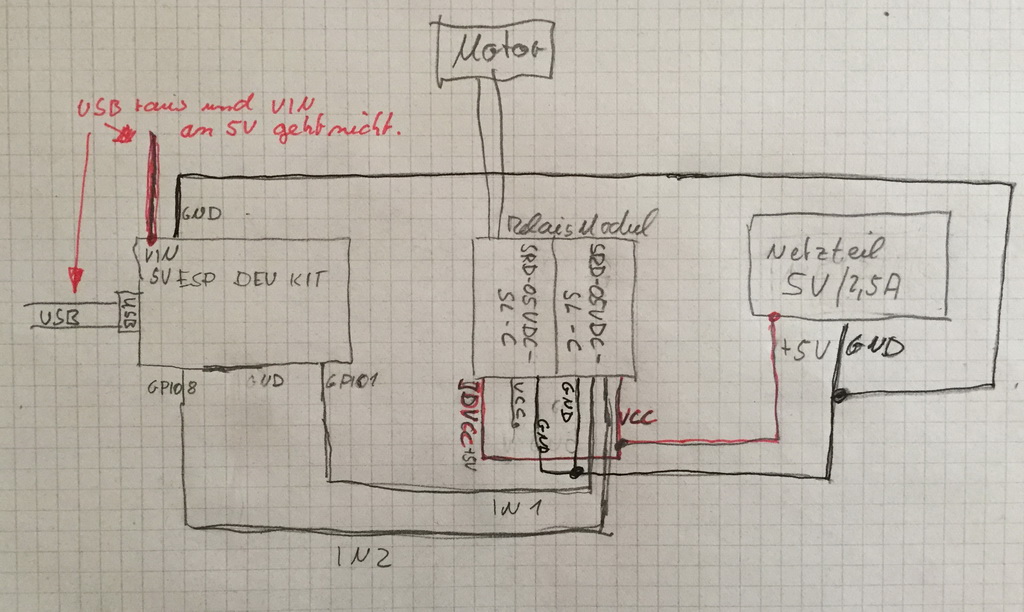 Motor
USB raus und VIN
an 5V geht nicht.
GND
Relais Modul
VIN
5V ESP DEV KIT
USB
USB
SRD-05VDC-
SL-C
SRD-05VDC-
SL-C
Netzteil
5V/2,5A
+5V GND
GPIO8
GND
GPIO1
JDVCC +5V
VCC
GND
GND
VCC
IN1
IN2